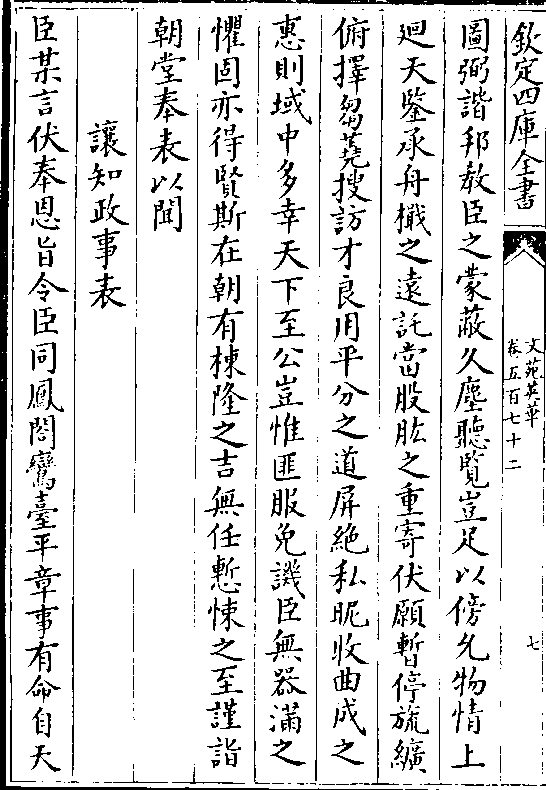 欽定四庫全書
文苑英華
卷五百七十二
七
圖弼諧邦敎臣之蒙蔽久塵聽覽豈足以傍允物情上
廻天鑒承舟檝之遠託當股肱之重寄伏願暫停旒纊
俯擇芻蕘搜訪才良用平分之道屏絶私昵收曲成之
惠則域中多幸天下至公豈惟匪服免譏臣無器滿之
懼固亦得賢斯在朝有棟隆之吉無任慙悚之至謹詣
朝堂奉表以聞
讓知政事表
臣某言伏奉恩旨令臣同鳳閣鸞臺平章事有命自天